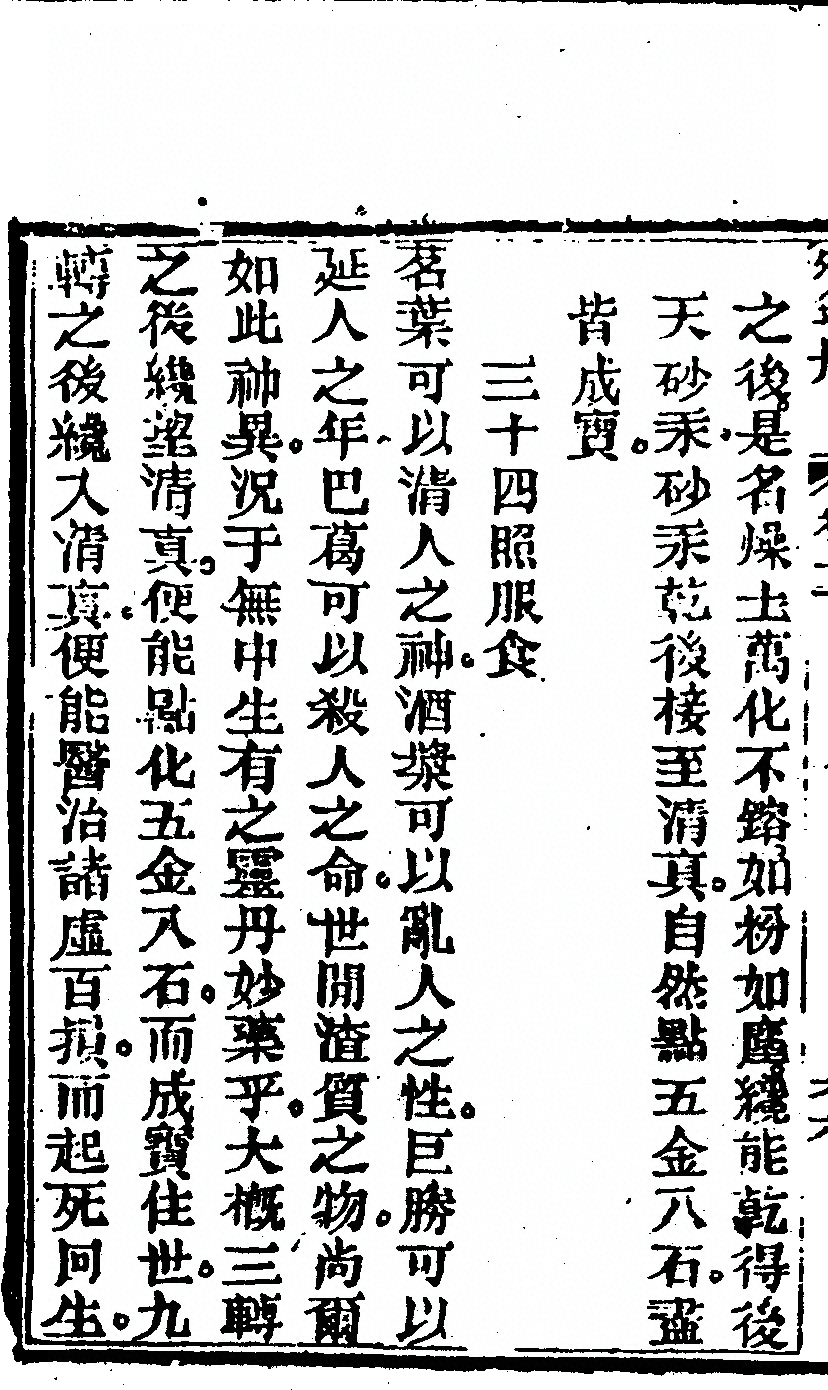 之後是名燥土萬化不鎔如粉如塵纔能乾得後
天砂汞砂汞乾後接至清真自然點五金八石盡
皆成寶
三十四照服食
茗葉可以清人之神酒漿可以亂人之性巨勝可以
延人之年巴葛可以殺人之命世間渣質之物尚爾
如此神異况于無中生有之靈丹妙藥乎大概三轉
之後纔望清真便能點化五金八石而成寶住世九
轉之後纔入清真便能醫治諸虛百損而起死回生